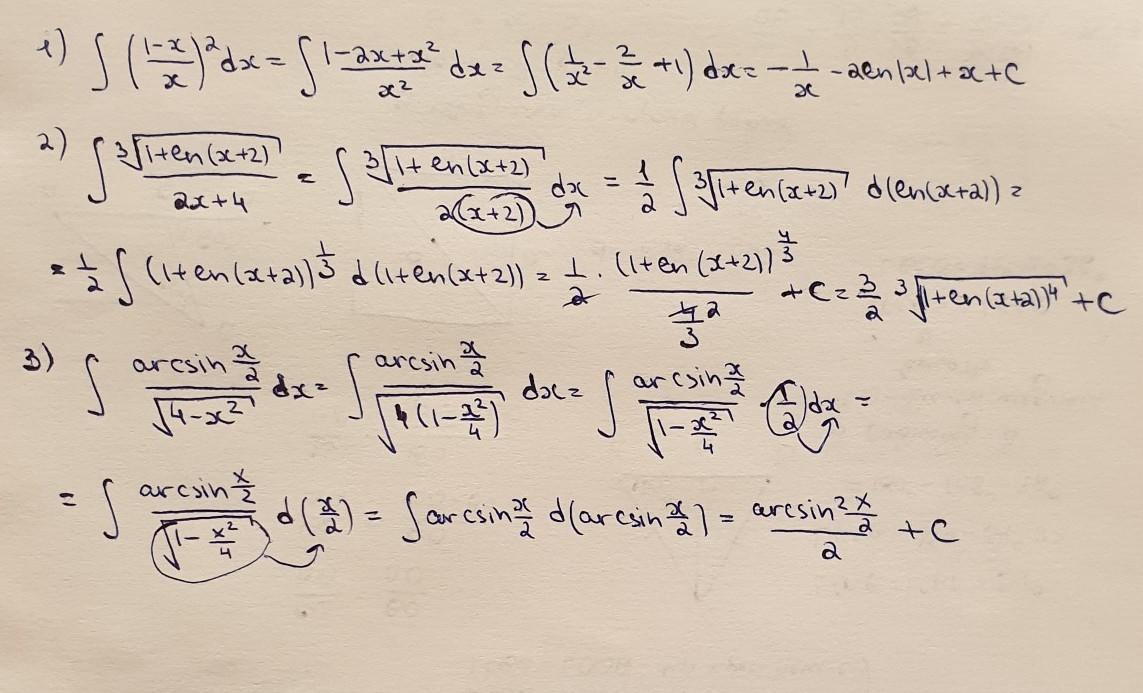 1) ∫ (1-x/x)² dx = ∫ 1-2x+x²/x² dx = ∫ (1/x² - 2/x + 1) dx = -1/x - 2ln|x| + x + C
2) ∫ ³√(1+ln(x+2))/2x+4 = ∫ ³√(1+ln(x+2))/2(x+2) dx = 1/2 ∫ ³√(1+ln(x+2)) d(ln(x+2)) =
= 1/2 ∫ (1+ln(x+2))^(1/3) d(1+ln(x+2)) = 1/2 · (1+ln(x+2))^(4/3)/(4/3) + C = 3/2 ³√(1+ln(x+2))⁴ + C
3) ∫ arcsin x/2/√(4-x²) dx = ∫ arcsin x/2/√(4(1-x²/4)) dx = ∫ arcsin x/2/√(1-x²/4) · (1/2) dx =
= ∫ arcsin x/2/√(1-x²/4) d(x/2) = ∫ arcsin x/2 d(arcsin x/2) = arcsin² x/2/2 + C